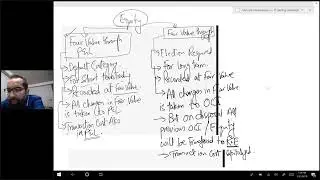 Equity
Fair Value through
P&L
→ Default Category
→ For short term/Trading
→ Recorded at Fair Value
→ All changes in Fair Value
is taken to P&L
→ Transaction Cost also
in P&L
Fair Value through
→ Election Required
→ for long term
→ Recorded at Fair Value
→ All changes in Fair Value
is taken to OCI
→ But on disposal All
previous OCI / Equity
will be transferred to
→ Transaction Cost Capitalized